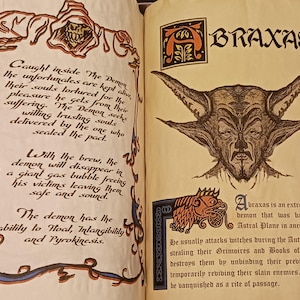 Caught inside The Demon,
the unfortunates are kept alive
their souls tortured for the
pleasure he gets from their
suffering. The Demon seeks
willing trusting souls
delivered by the one who
sealed the pact.
With the brew, the
demon will disappear in
a giant gas bubble freeing
his victims leaving them
safe and sound.
The demon has the
ability to Float, Intangibility
and Pyrokinesis.
ABRAXAS
Abraxas is an extr
demon that was ba
Astral Plane in anc
He usually attacks witches during the Aut
stealing their Grimoires and Books of
destroys them by unbinding their prev
temporarily reviving their slain enemies
be vanquished as a rite of passage.